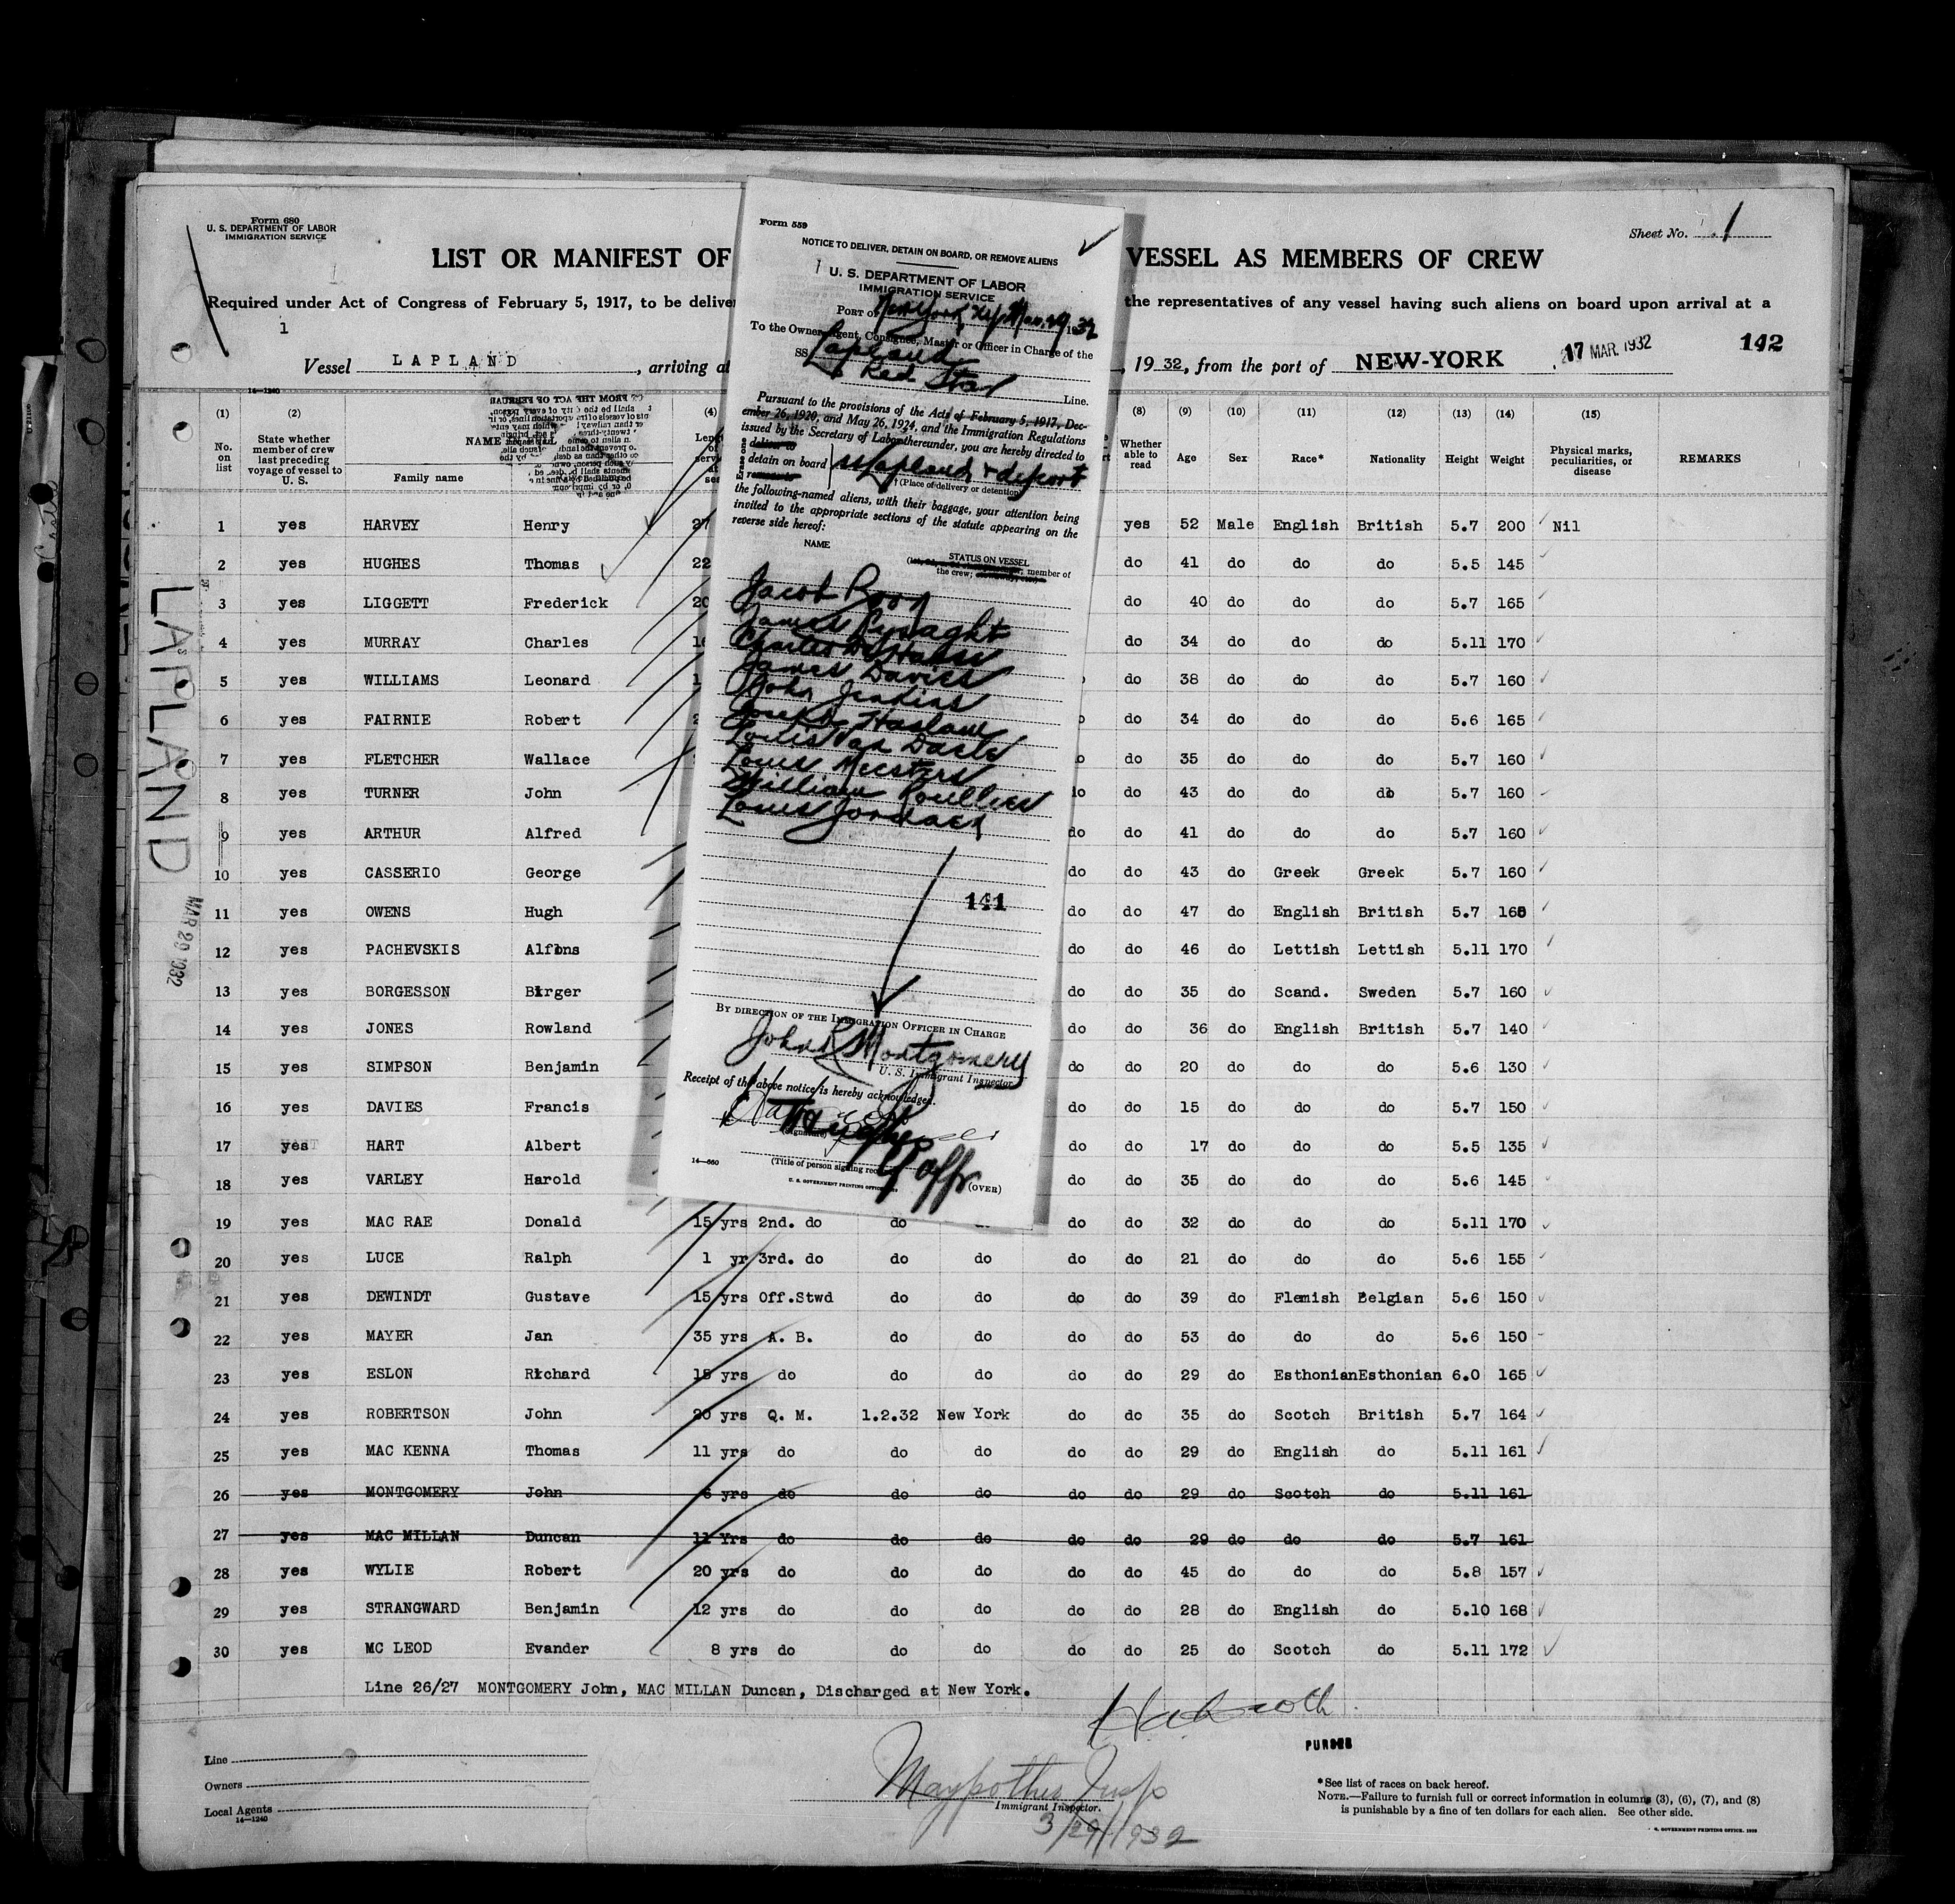 Form 680
U. S. DEPARTMENT OF LABOR
IMMIGRATION SERVICE
Sheet No. 1
LIST OR MANIFEST OF
VESSEL AS MEMBERS OF CREW
Required under Act of Congress of February 5, 1917, to be delive
the representatives of any vessel having such aliens on board upon arrival at a
1
Vessel LAPLAND, arriving at
, 1932, from the port of NEW-YORK
17 MAR. 1932
142
14-1240
(1) (2) (4) (8) (9) (10) (11) (12) (13) (14) (15)
No. on list
State whether member of crew last preceding voyage of vessel to U. S.
Family name
Whether able to read
Age Sex Race* Nationality Height Weight
Physical marks, peculiarities, or disease
REMARKS
1 yes HARVEY Henry 27 yes 52 Male English British 5.7 200 Nil
2 yes HUGHES Thomas 22 do 41 do do do 5.5 145
3 yes LIGGETT Frederick 20 do 40 do do do 5.7 165
4 yes MURRAY Charles do 34 do do do 5.11 170
5 yes WILLIAMS Leonard do 38 do do do 5.7 160
6 yes FAIRNIE Robert do 34 do do do 5.6 165
7 yes FLETCHER Wallace do 35 do do do 5.7 160
8 yes TURNER John do 43 do do do 5.7 160
9 yes ARTHUR Alfred do do 41 do do do 5.7 160
10 yes CASSERIO George do do 43 do Greek Greek 5.7 160
11 yes OWENS Hugh do do 47 do English British 5.7 160
12 yes PACHEVSKIS Alfons do do 46 do Lettish Lettish 5.11 170
13 yes BORGESSON Birger do do 35 do Scand. Sweden 5.7 160
14 yes JONES Rowland do do 36 do English British 5.7 140
15 yes SIMPSON Benjamin do do 20 do do do 5.6 130
16 yes DAVIES Francis do do 15 do do do 5.7 150
17 yes HART Albert do do 17 do do do 5.5 135
18 yes VARLEY Harold do do 35 do do do 5.6 145
19 yes MAC RAE Donald 15 yrs 2nd. do do do do do 32 do do do 5.11 170
20 yes LUCE Ralph 1 yr 3rd. do do do do do 21 do do do 5.6 155
21 yes DEWINDT Gustave 15 yrs Off.Stwd do do do do 39 do Flemish Belgian 5.6 150
22 yes MAYER Jan 35 yrs A. B. do do do do 53 do do do 5.6 150
23 yes ESLON Richard 15 yrs do do do do do 29 do Esthonian Esthonian 6.0 165
24 yes ROBERTSON John 20 yrs Q. M. 1.2.32 New York do do 35 do Scotch British 5.7 164
25 yes MAC KENNA Thomas 11 yrs do do do do do 29 do English do 5.11 161
26 yes MONTGOMERY John 6 yrs do do do do do 29 do Scotch do 5.11 161
27 yes MAC MILLAN Duncan 11 Yrs do do do do do 29 do do do 5.7 161
28 yes WYLIE Robert 20 yrs do do do do do 45 do do do 5.8 157
29 yes STRANGWARD Benjamin 12 yrs do do do do do 28 do English do 5.10 168
30 yes MC LEOD Evander 8 yrs do do do do do 25 do Scotch do 5.11 172
Line 26/27 MONTGOMERY John, MAC MILLAN Duncan, Discharged at New York.
PURSER
Line
Owners
Local Agents
14-1240
Immigrant Inspector.
3/29/1932
*See list of races on back hereof.
NOTE.—Failure to furnish full or correct information in columns (3), (6), (7), and (8)
is punishable by a fine of ten dollars for each alien. See other side.
LAPLAND
MAR 29 1932
Form 559
NOTICE TO DELIVER, DETAIN ON BOARD, OR REMOVE ALIENS
U. S. DEPARTMENT OF LABOR
IMMIGRATION SERVICE
PORT OF New York, NY, Mar. 29 1932
To the Owner, Agent, Consignee, Master or Officer in Charge of the
SS Lapland
Red Star Line.
Pursuant to the provisions of the Acts of February 5, 1917, Dec-
ember 26, 1920, and May 26, 1924, and the Immigration Regulations
issued by the Secretary of Labor thereunder, you are hereby directed to
Erase one
deliver to
detain on board
remove to
SS Lapland & deport
†(Place of delivery or detention)
the following-named aliens, with their baggage, your attention being
invited to the appropriate sections of the statute appearing on the
reverse side hereof:
NAME
STATUS ON VESSEL
member of
the crew;
Jacob Roos
James Rysaght
Charles De Haes
James Davies
John Jenkins
Joseph Haslam
Louis Van Daele
Louis Meesters
William Roullier
Louis
141
BY DIRECTION OF THE IMMIGRATION OFFICER IN CHARGE
John R Montgomery
U. S. Immigrant Inspector.
Receipt of the above notice is hereby acknowledged.
(Signature)
(Title of person signing
14-660
U. S. GOVERNMENT PRINTING OFFICE
(OVER)